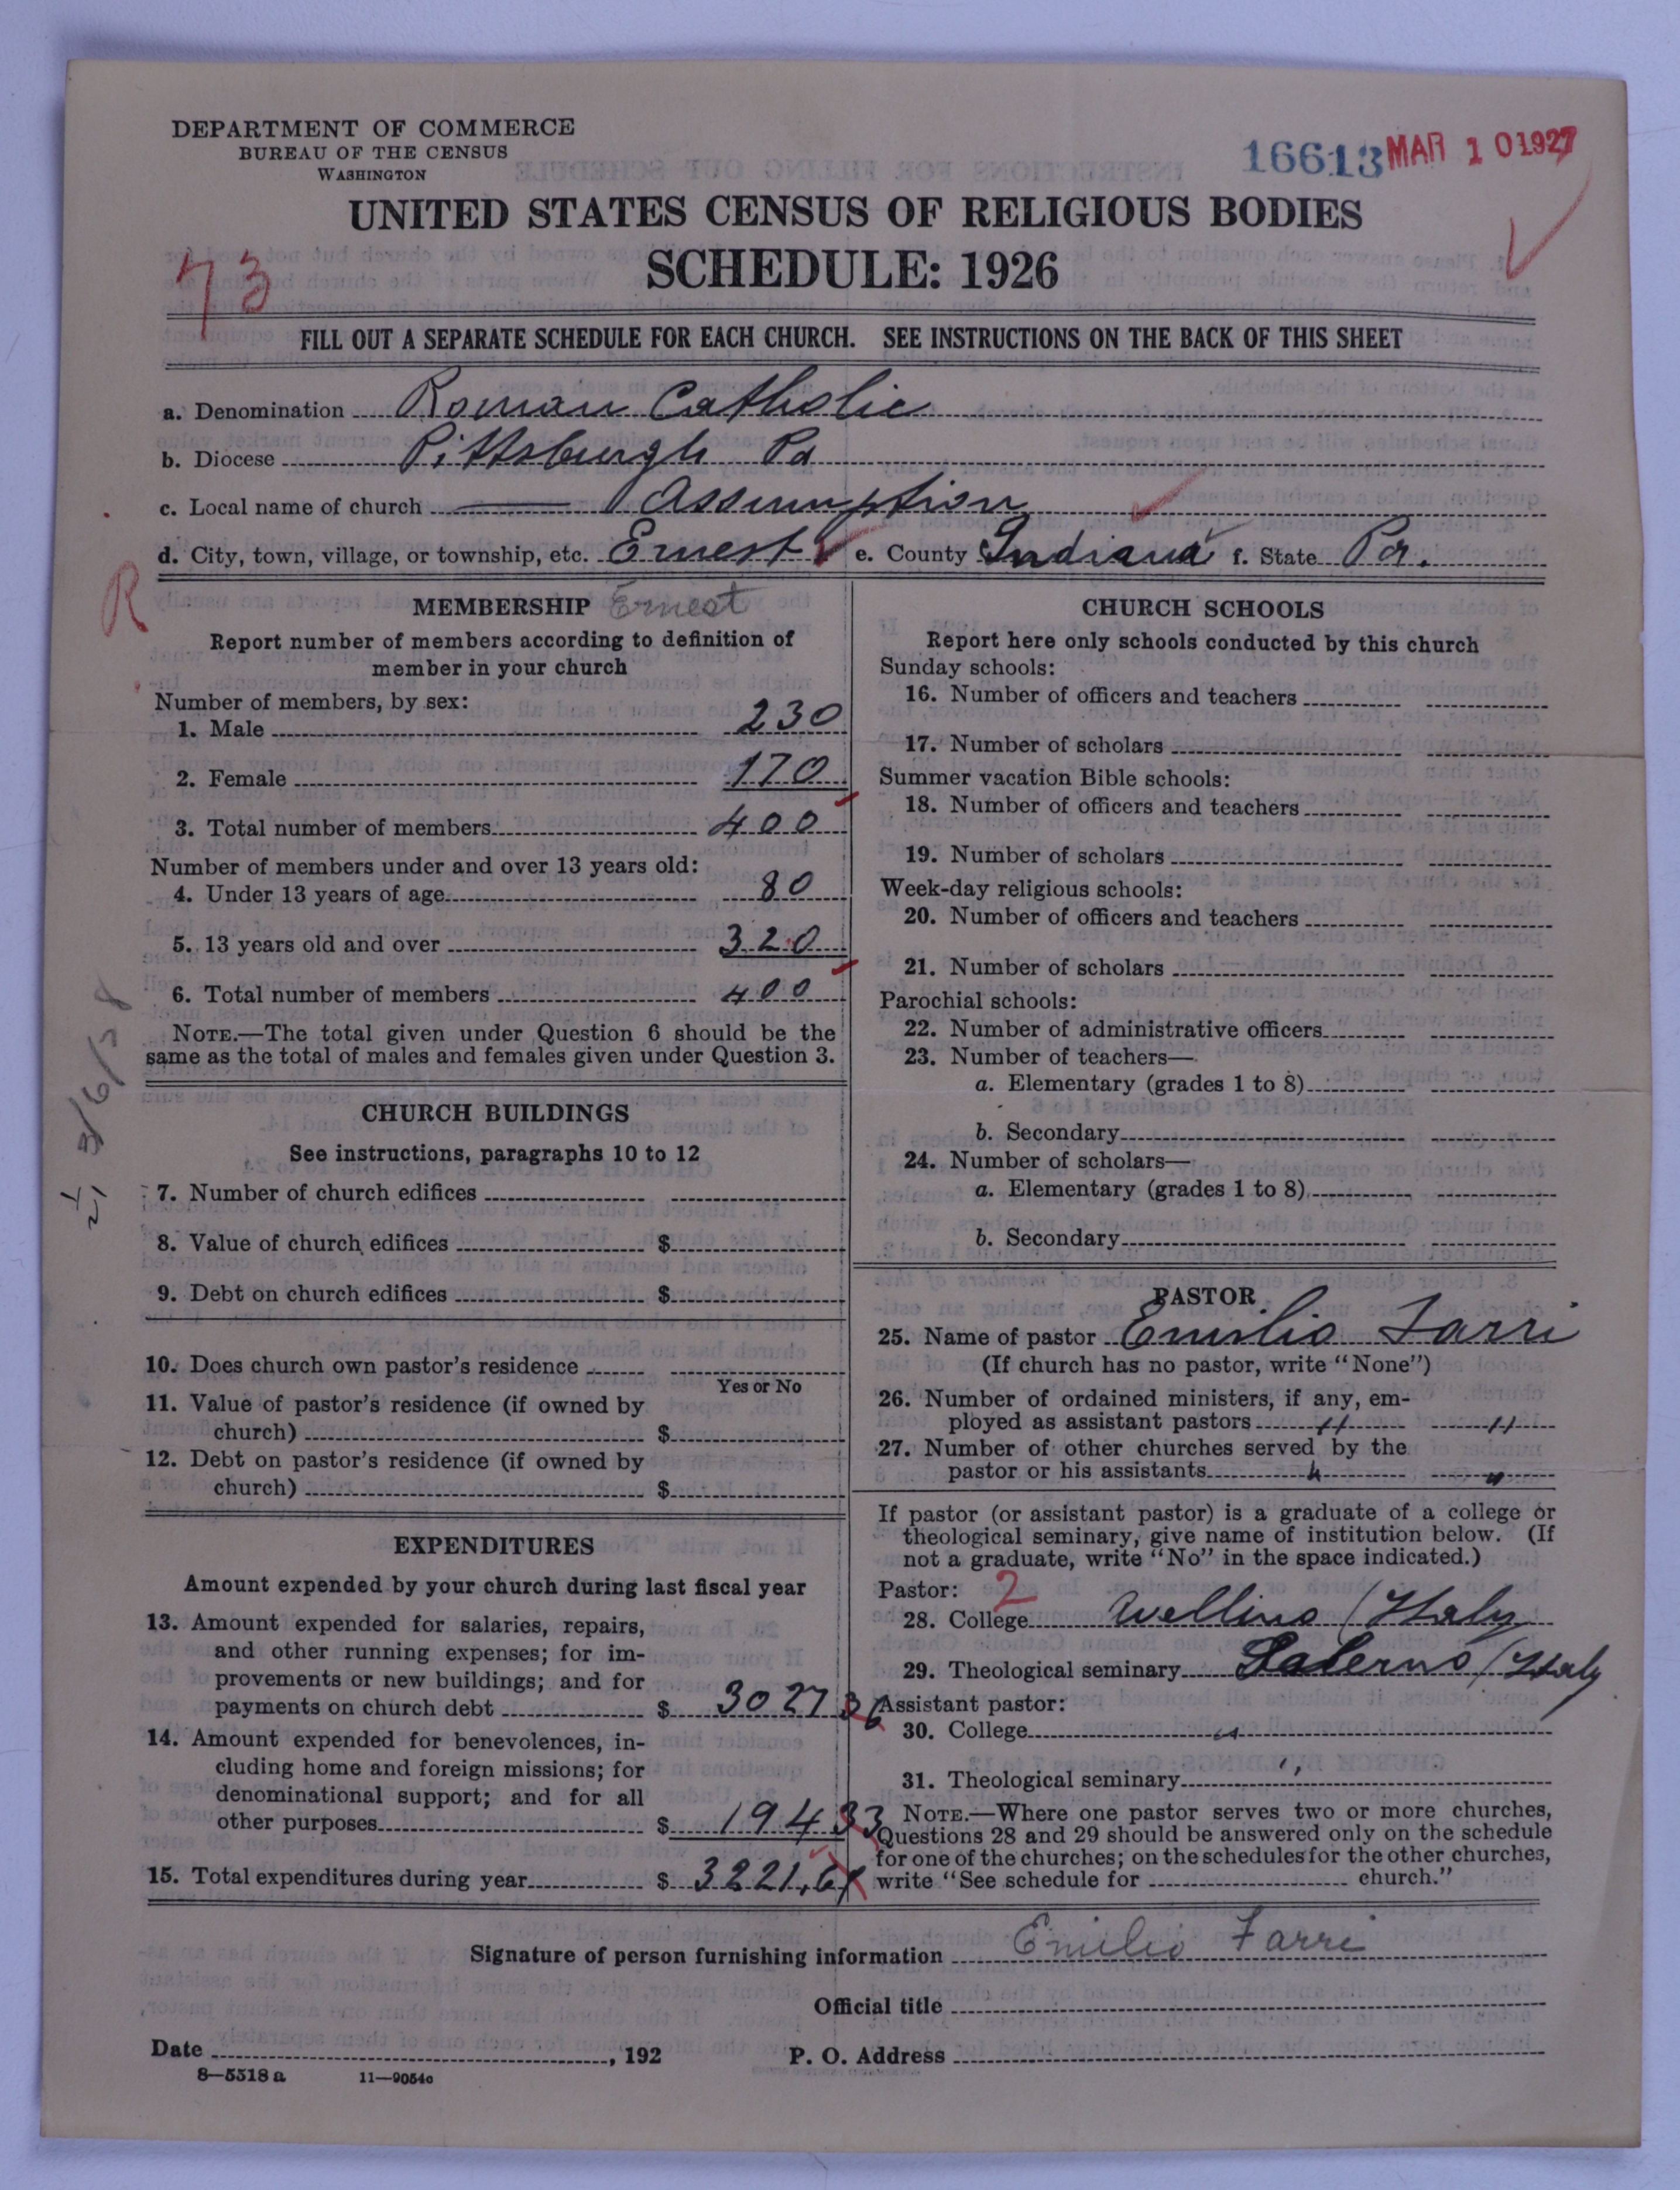 DEPARTMENT OF COMMERCE
BUREAU OF THE CENSUS
WASHINGTON
16613 MAR 10 1927
UNITED STATES CENSUS OF RELIGIOUS BODIES
SCHEDULE: 1926
73
FILL OUT A SEPARATE SCHEDULE FOR EACH CHURCH. SEE INSTRUCTIONS ON THE BACK OF THIS SHEET
a. Denomination Roman Catholic
b. Diocese Pittsburgh Pa
c. Local name of church Assumption
d. City, town, village, or township, etc. Ernest e. County Indiana f. State Pa.
R
MEMBERSHIP Ernest
Report number of members according to definition of
member in your church
Number of members, by sex:
1. Male 230
2. Female 170
3. Total number of members 400
Number of members under and over 13 years old:
4. Under 13 years of age 80
5. 13 years old and over 320
6. Total number of members 400
NOTE.—The total given under Question 6 should be the
same as the total of males and females given under Question 3.
CHURCH BUILDINGS
See instructions, paragraphs 10 to 12
7. Number of church edifices
8. Value of church edifices $
9. Debt on church edifices $
10. Does church own pastor's residence
Yes or No
11. Value of pastor's residence (if owned by
church) $
12. Debt on pastor's residence (if owned by
church) $
EXPENDITURES
Amount expended by your church during last fiscal year
13. Amount expended for salaries, repairs,
and other running expenses; for im-
provements or new buildings; and for
payments on church debt $ 3027 36
14. Amount expended for benevolences, in-
cluding home and foreign missions; for
denominational support; and for all
other purposes $ 194 33
15. Total expenditures during year $ 3221,6
CHURCH SCHOOLS
Report here only schools conducted by this church
Sunday schools:
16. Number of officers and teachers
17. Number of scholars
Summer vacation Bible schools:
18. Number of officers and teachers
19. Number of scholars
Week-day religious schools:
20. Number of officers and teachers
21. Number of scholars
Parochial schools:
22. Number of administrative officers
23. Number of teachers—
a. Elementary (grades 1 to 8)
b. Secondary
24. Number of scholars—
a. Elementary (grades 1 to 8)
b. Secondary
PASTOR
25. Name of pastor Emilio Farri
(If church has no pastor, write "None")
26. Number of ordained ministers, if any, em-
ployed as assistant pastors " "
27. Number of other churches served by the
pastor or his assistants " "
If pastor (or assistant pastor) is a graduate of a college or
theological seminary, give name of institution below. (If
not a graduate, write "No" in the space indicated.)
Pastor: 2
28. College Avellino / Italy
29. Theological seminary Salerno / Italy
Assistant pastor:
30. College "
31. Theological seminary "
NOTE.—Where one pastor serves two or more churches,
Questions 28 and 29 should be answered only on the schedule
for one of the churches; on the schedules for the other churches,
write "See schedule for church."
Signature of person furnishing information Emilio Farri
Official title
Date , 192 P. O. Address
8—5518 a 11—9054c